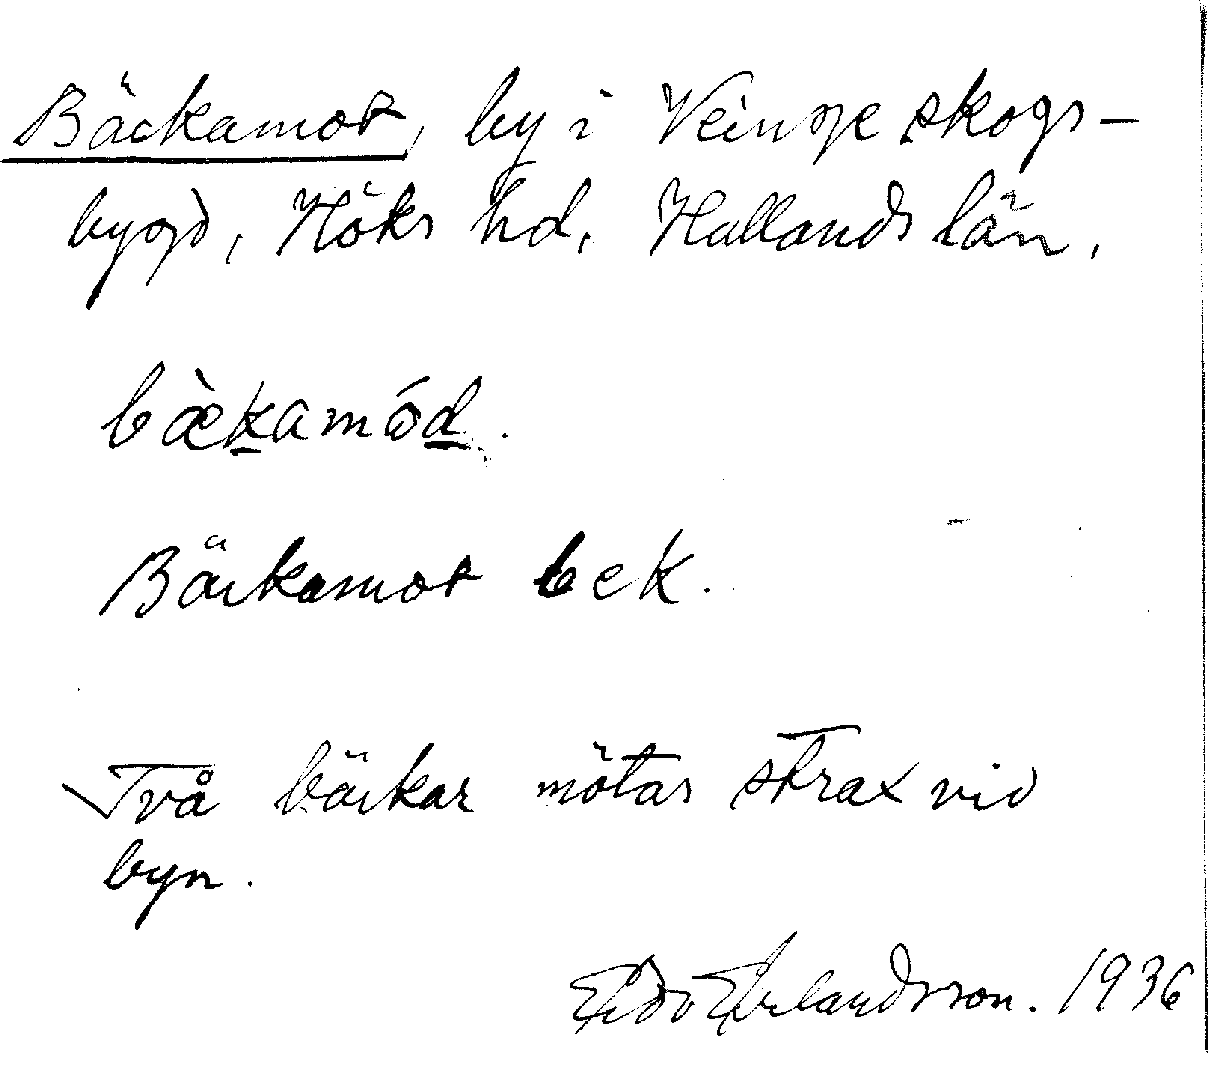 Bäckamot, by i Veinge skogs-
bygd, Höks hd, Hallands län.
bæ̀k̲amód̲.
Bäckamot bek.
Två bäckar mötas strax vid
byn.
Erlandsson. 1936